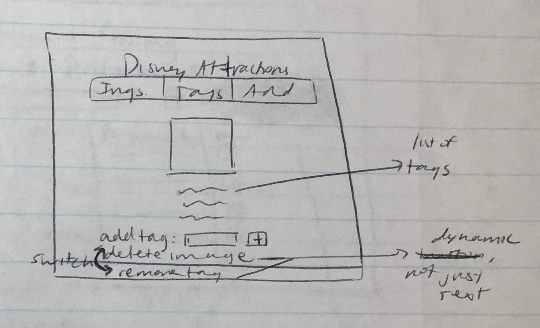 Disney Attractions
Imgs. Tags Add
list of
tags
add tag: +
delete image
switch
remove tag
dynamic
not just
text